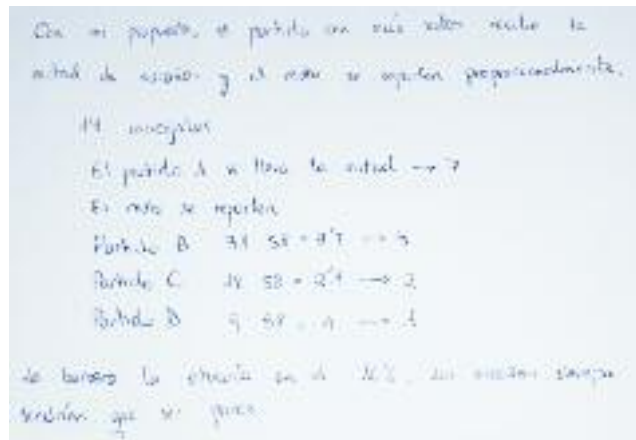 Con mi propuesta, el partido con más votos recibe la
mitad de escaños y el resto se reparten proporcionalmente.
14 concejales
El partido A se lleva la mitad → 7
El resto se reparten
Partido B 31 58 → 
Partido C 18 58 → 2
Partido D 9 58 → 1
La barrera la en el 10%, los siempre
tendrían que ser